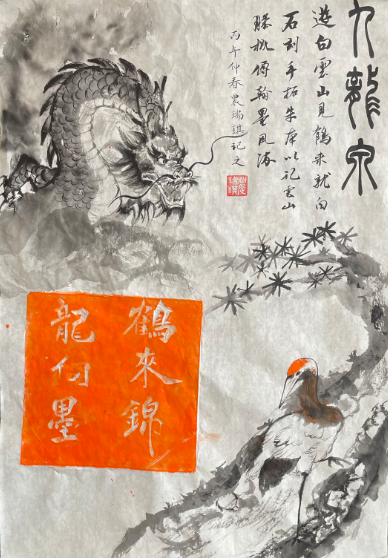 九龍泉
遊白雲山見鶴來龍向
石刻手拓朱本以記雲山
勝概傳翰墨風流
丙午仲春農瑞祺記之
鶴來錦
龍向墨